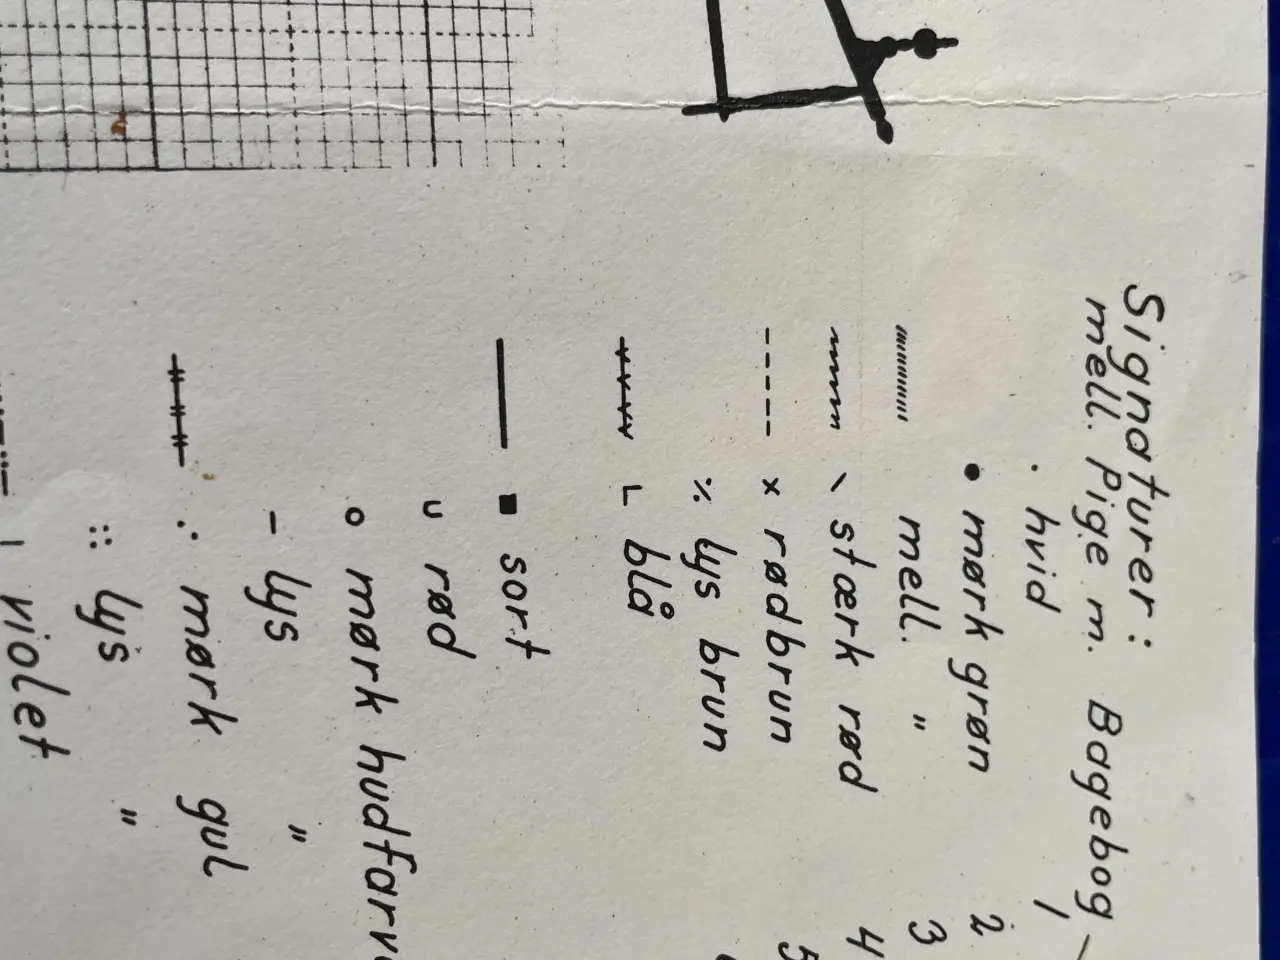 Signaturer:
mell. Pige m. Bagebog
· hvid 1
● mørk grøn 2
mell. " 3
\ stærk rød 4
x rødbrun 5
٪ lys brun
L blå
■ sort
u rød
o mørk hudfarv
- lys "
: mørk gul
:: lys "
| violet